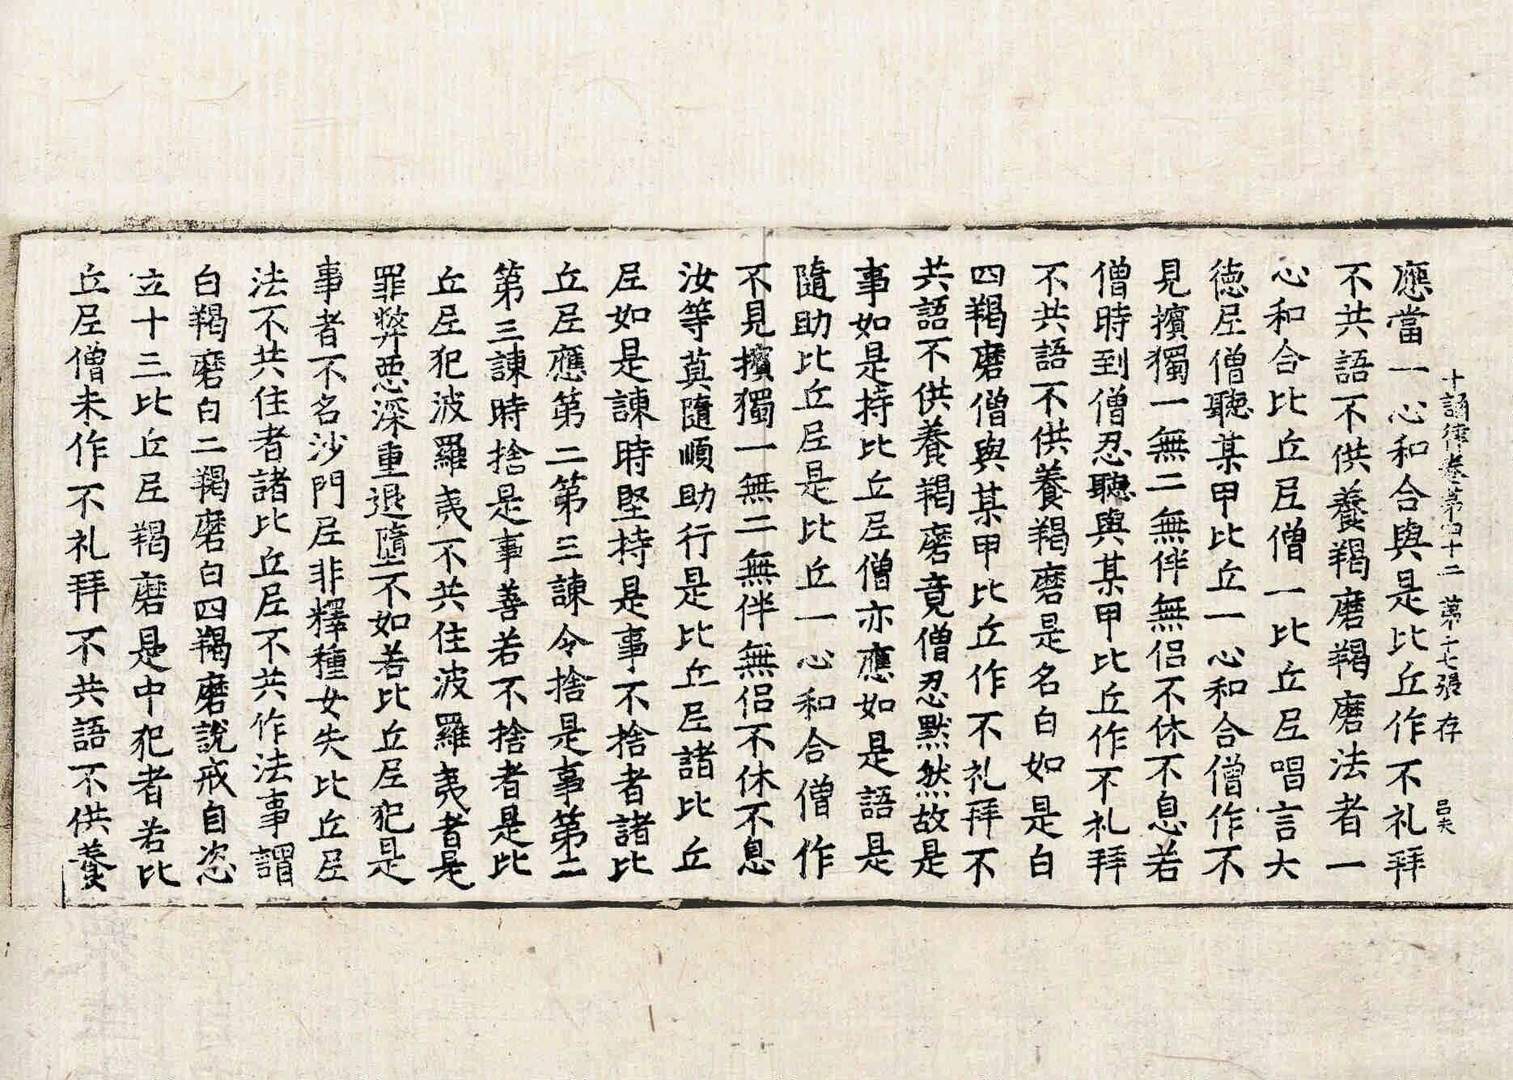 十誦律卷第四十二 第二十七張 存 呂夫
應當一心和合與是比丘作不礼拜
不共語不供養羯磨羯磨法者一
心和合比丘尼僧一比丘尼唱言大
德尼僧聽某甲比丘一心和合僧作不
見擯獨一無二無伴無侶不休不息若
僧時到僧忍聽與某甲比丘作不礼拜
不共語不供養羯磨是名白如是白
四羯磨僧與某甲比丘作不礼拜不
共語不供養羯磨竟僧忍默然故是
事如是持比丘尼僧亦應如是語是
隨助比丘尼是比丘一心和合僧作
不見擯獨一無二無伴無侶不休不息
汝等莫隨順助行是比丘尼諸比丘
尼如是諫時堅持是事不捨者諸比
丘尼應第二第三諫令捨是事第二
第三諫時捨是事善若不捨者是比
丘尼犯波羅夷不共住波羅夷者是
罪弊惡深重退墮不如若比丘尼犯是
事者不名沙門尼非釋種女失比丘尼
法不共住者諸比丘尼不共作法事謂
白羯磨白二羯磨白四羯磨說戒自恣
立十三比丘尼羯磨是中犯者若比
丘尼僧未作不礼拜不共語不供養